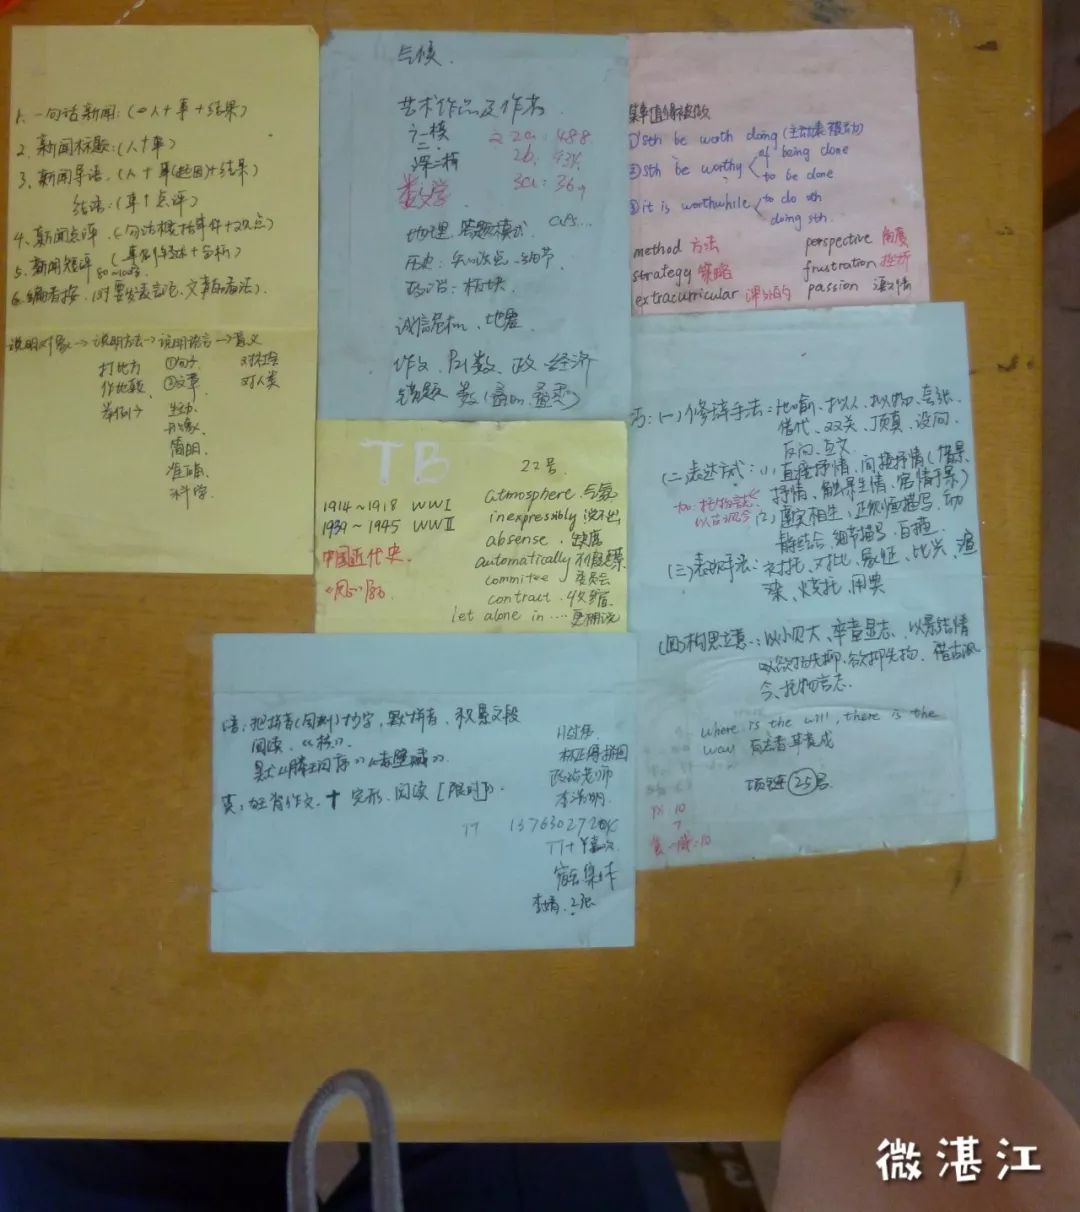 1、一句话新闻：(   人＋事＋结果)
2、新闻标题：(人＋事)
3、新闻导语、(人＋事(起因)＋结果)
结语：(事＋点评)
4、新闻点评、(一句话概括事件＋观点)
5、新闻短评 (事例转述＋分析)
80~100字
6、编者按、(对    发表言论、文章的看法)
说明对象→说明方法→说明语言→意义
打比方 ①句子 对社会
作比较 ②文章 对人类
举例子 生动
形象
简明
准确
科学
气候
艺术作品及作者
广一模 2 2a：488
广二
深二模 2b：
数学 3a：36
地理、答题模式
历史：知识点、细节
政治：板块
诚信危机、地震
作文、  数、政、经济
错题 数
某事值得被做
①sth be worth doing (主动表被动)
②sth be worthy of being done
to be done
③it is worthwhile to do sth
doing sth.
method 方法 perspective 角度
strategy 策略 frustration 挫折
extracurricular 课外的 passion 激情
TB
22号
1914～1918 WWI
1939～1945 WWII
中国近代史
atmosphere 气氛
inexpressibly 说不出
absense、缺席
automatically 不假思索
commitee 委员会
contract、收缩
let alone in ···· 更别说
(一)修辞手法：比喻、拟人、拟物、夸张、
借代、双关、顶真、设问、
反问、互文
(二)表达方式：(1)、直接抒情、间接抒情(借景
抒情、触景生情、寓情于景)
如：托物言志
以古讽今
(2)虚实相生、正侧面描写、动
静结合、细节描写、白描、
(三)表现手法：衬托、对比、象征、比兴、渲
染、烘托、用典
(四)构思立意：以小见大、卒章显志、以景结情
欲扬先抑、欲抑先扬、借古讽
今、托物言志.
where is the will, there is the
way 有志者事竟成
项链 25号
10
7
10
语：把拼音(同列)抄字，默拼音、积累文段
阅读、
默《滕王阁序》《赤壁赋》
英：      作文、＋完形、阅读［限时］.
政治老师
TT
李  、2张
微湛江